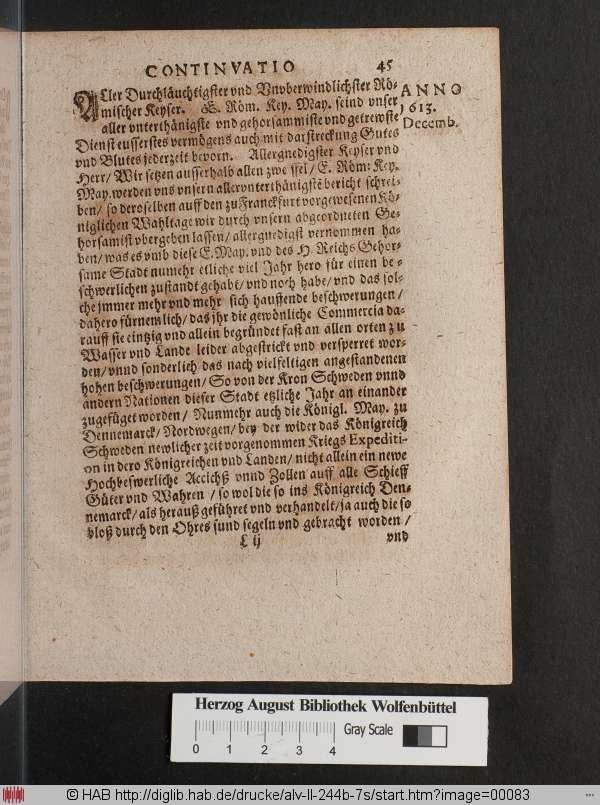 CONTINVATIO 45
ANNO
1613.
Decemb.
ALler Durchläuchtigster vnd Vnvberwindlichster Rö-
mischer Keyser. E. Röm. Key. May. seind vnser
aller vnterthänigste vnd gehorsammiste vnd getrewste
Dienst eusserstes vermögens auch mit darstreckung Gutes
vnd Blutes jederzeit bevorn. Allergnedigster Keyser vnd
Herr/ Wir setzen ausserhalb allen zweiffel/ E. Röm: Key.
May. werden vns vnsern allervnterthänigstē bericht schrei-
ben/ so deroselben auff den zu Franckfurt vorgewesenen Kö-
niglichen Wahltage wir durch vnsern abgeordneten Ge-
horsamist vbergeben lassen/ allergnedigst vernommen ha-
ben/ was es vmb diese E. May. vnd des H. Reichs Gehor-
same Stadt numehr etliche viel Jahr hero für einen be-
schwerlichen zustandt gehabt/ vnd noch habe/ vnd das sol-
che jmmer mehr vnd mehr sich hauffende beschwerungen/
dahero fürnemlich/ das jhr die gewönliche Commercia da-
rauff sie eintzig vnd allein begründet fast an allen orten zu
Wasser vnd Lande leider abgestrickt vnd versperret wor-
den/ vnnd sonderlich das nach vielfeltigen angestandenen
hohen beschwerungen/ So von der Kron Schweden vnnd
andern Nationen dieser Stadt etzliche Jahr an einander
zugefüget worden/ Nunmehr auch die Königl. May. zu
Dennemarck/ Nordwegen/ bey der wider das Königreich
Schweden newlicher zeit vorgenommen Kriegs Expediti-
on in dero Königreichen vnd Landen/ nicht allein ein newe
Hochbeswerliche Accichß vnnd Zollen auff alle Schieff
Güter vnd Wahren/ so wol die so ins Königreich Den-
nemarck/ als herauß geführet vnd verhandelt/ ja auch die so
bloß durch den Ohresund segeln vnd gebracht worden/
L ij vnd
Herzog August Bibliothek Wolfenbüttel
0 1 2 3 4 Gray Scale
© HAB http://diglib.hab.de/drucke/alv-ll-244b-7s/start.htm?image=00083